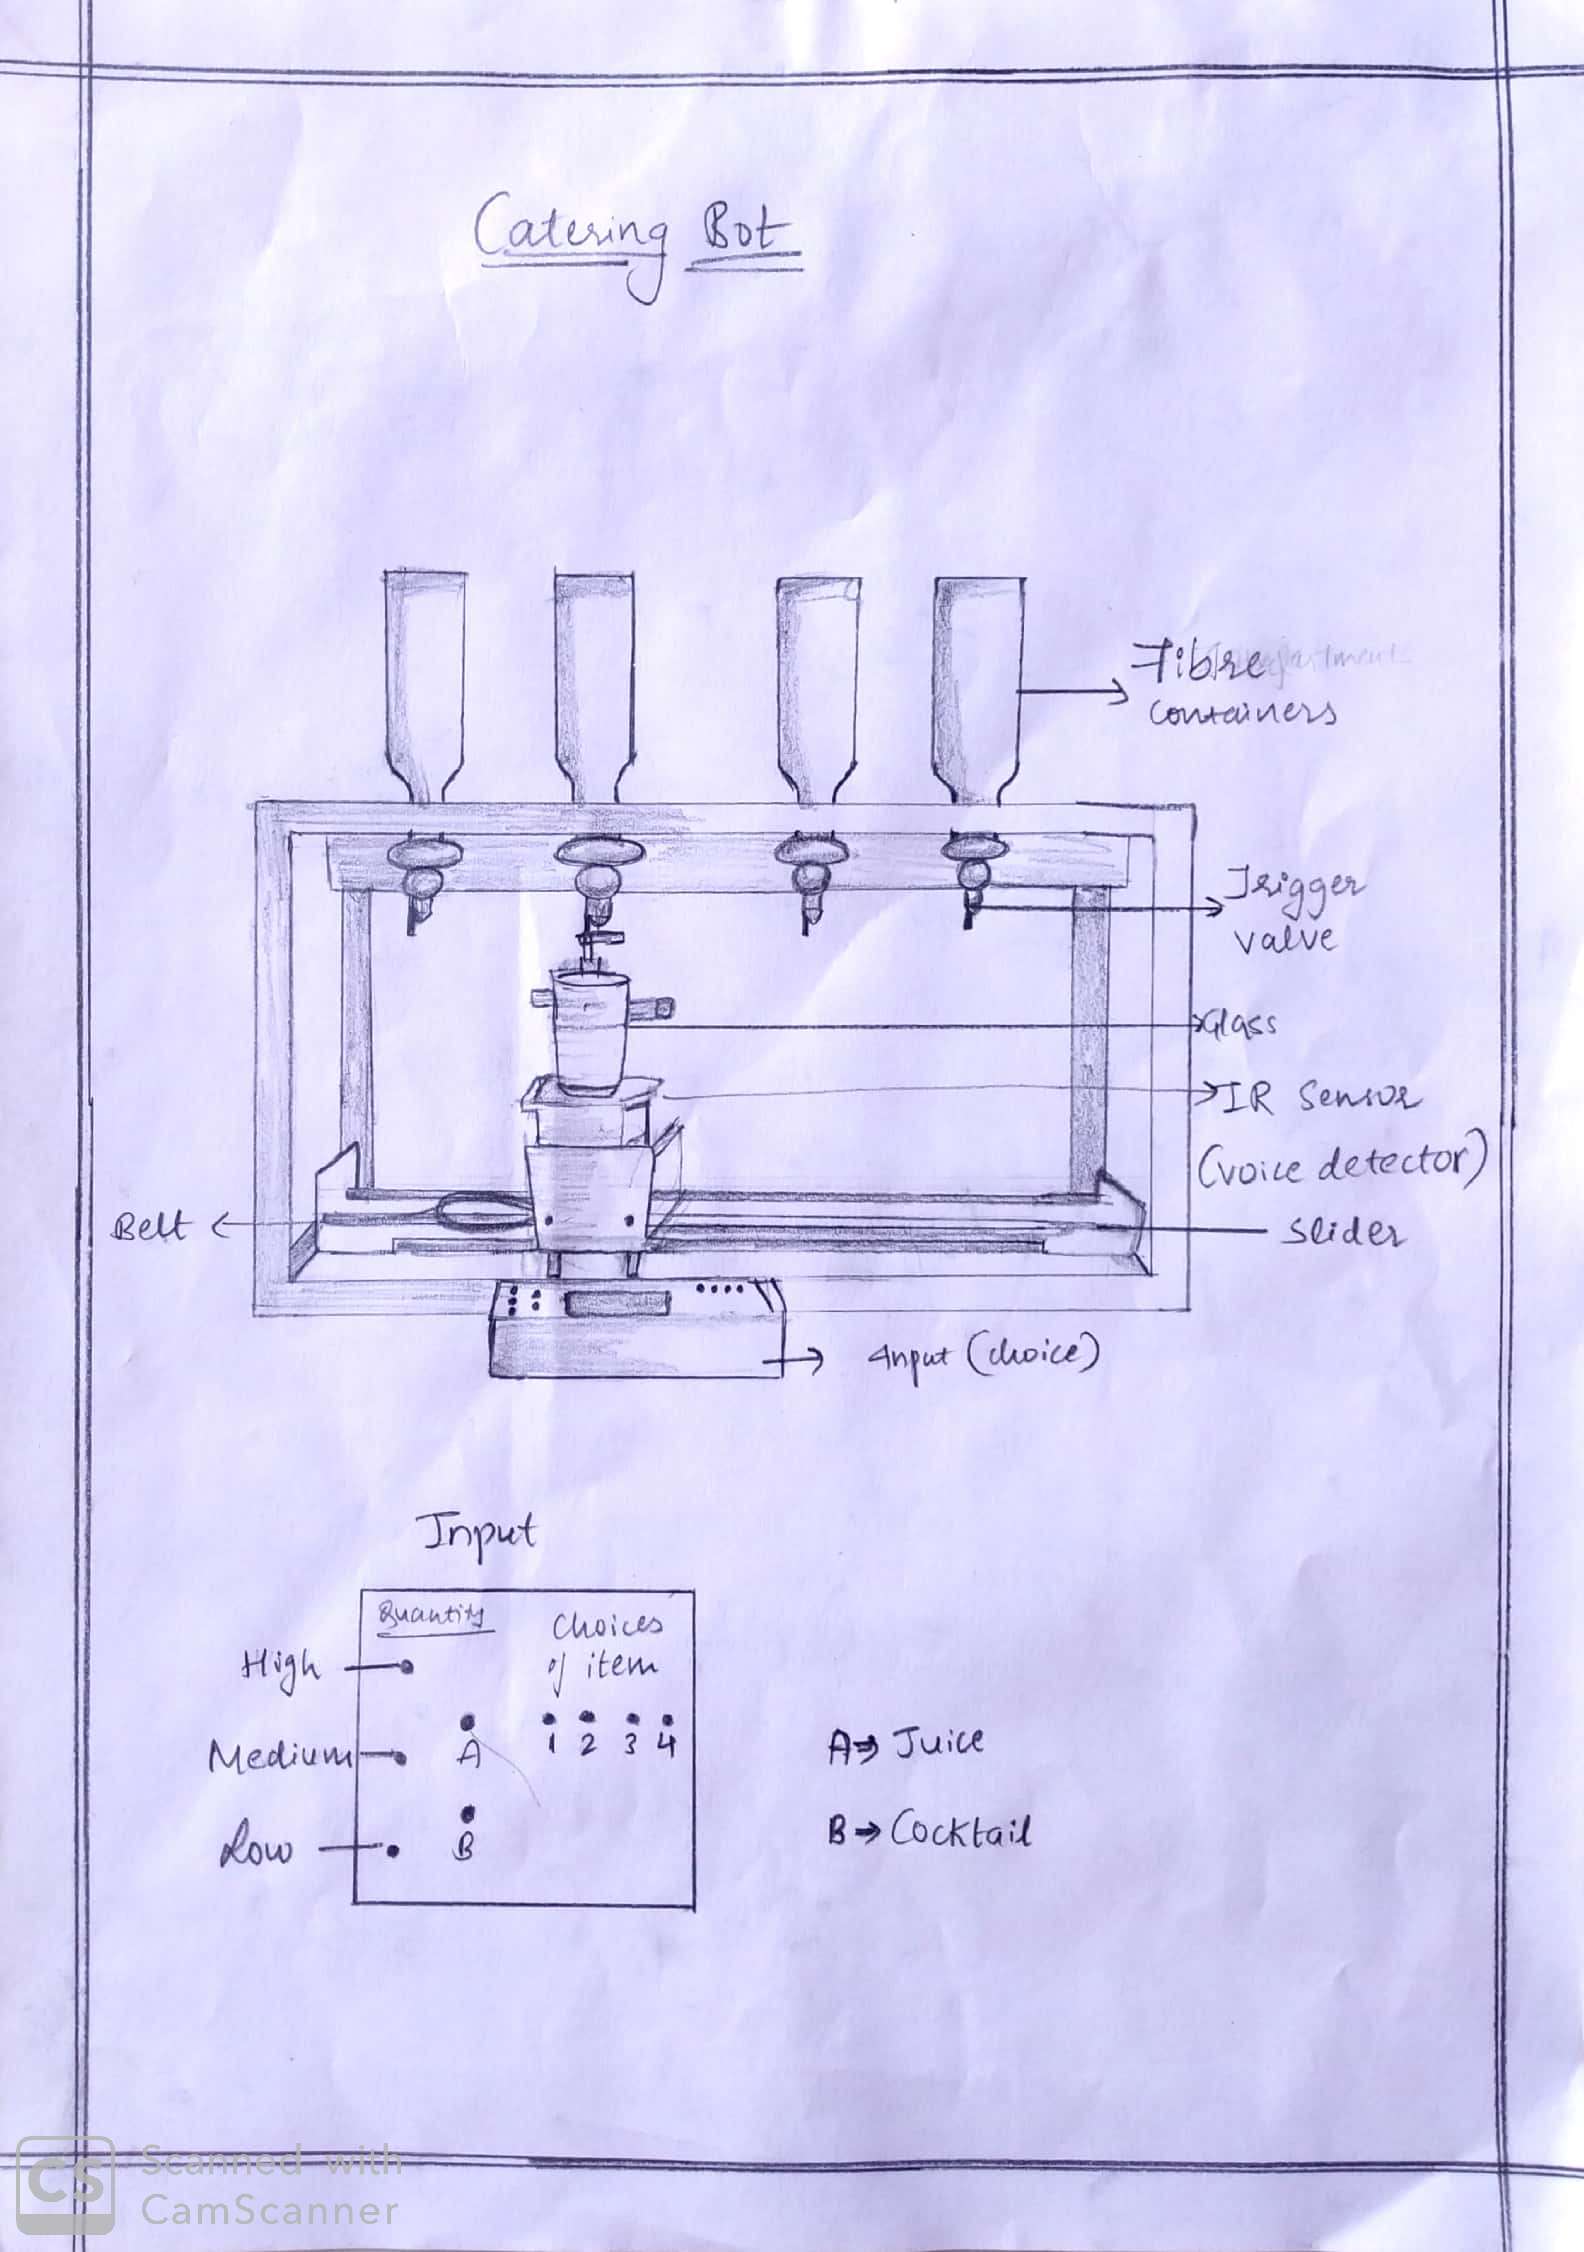 Catering Bot
Fibre
containers
Trigger
valve
Glass
IR Sensor
(voice detector)
Belt
slider
Input (choice)
Input
Quantity
Choices
of item
High
1 2 3 4
A
Medium
A⇒ Juice
B
Low
B⇒ Cocktail
CS
Scanned with
CamScanner